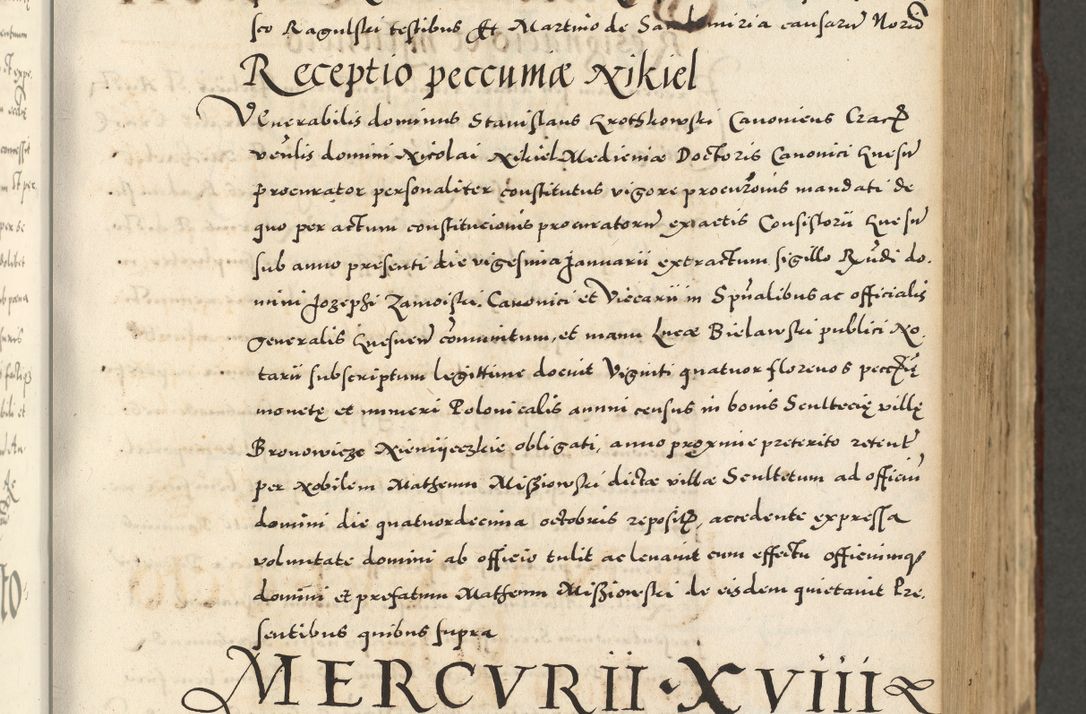 sco Ragulski testibus Et Martino de Sandomiria causarum Norio
Receptio peccuniæ Nikiel
VEnerabilis dominus Stanislaus Krothkowski Canonicus Crac
venlis domini Nicolai Nikiel Medicinæ Doctoris Canonici Gnesn
procurator personaliter constitutus vigore procuronis mandati de
quo per actum constitucionis procuratorum ex actis Consistorii Gnesn
sub anno presenti die vigesima Januarii extractum sigillo Rndi do-
mini Jozephi Zamoiski. Canonici et Viccarii in Spualibus ac officialis
generalis Gnesnen communitum, et manu Lucæ Bielawski publici No-
tarii subscriptum legittime docuit Viginti quatuor florenos peccunię
monetę et numeri Polonicalis annui census in bonis Scultecię villę
Bronowicze Niemijeczkie obligati, anno proxime preterito retent
per Nobilem Matheum Missiowski dictæ villæ Scultetum ad officium
domini die quatuordecima octobris reposit, accedente expressa
voluntate domini ab officio tulit ac levavit cum effectu officiumq
domini et prefatum Matheum Missiowski de eisdem quietavit Pre-
sentibus quibus supra
MERCVRII · XVIII